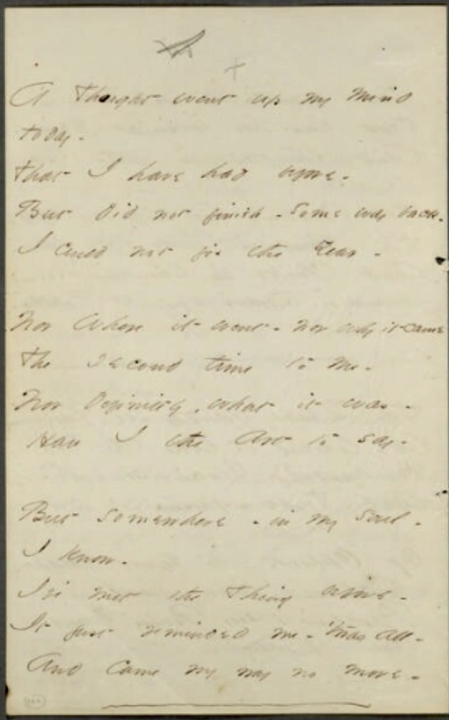 A Thought went up my mind
today -
That I have had before -
But did not finish - some way back -
I could not fix the Year -
Nor Where it went - nor why it came
The second time to me -
Nor Definitely, what it was -
Have I the Art to say -
But somewhere - in my soul -
I know -
I've met the Thing before -
It just reminded me - 'twas all -
And came my way no more -